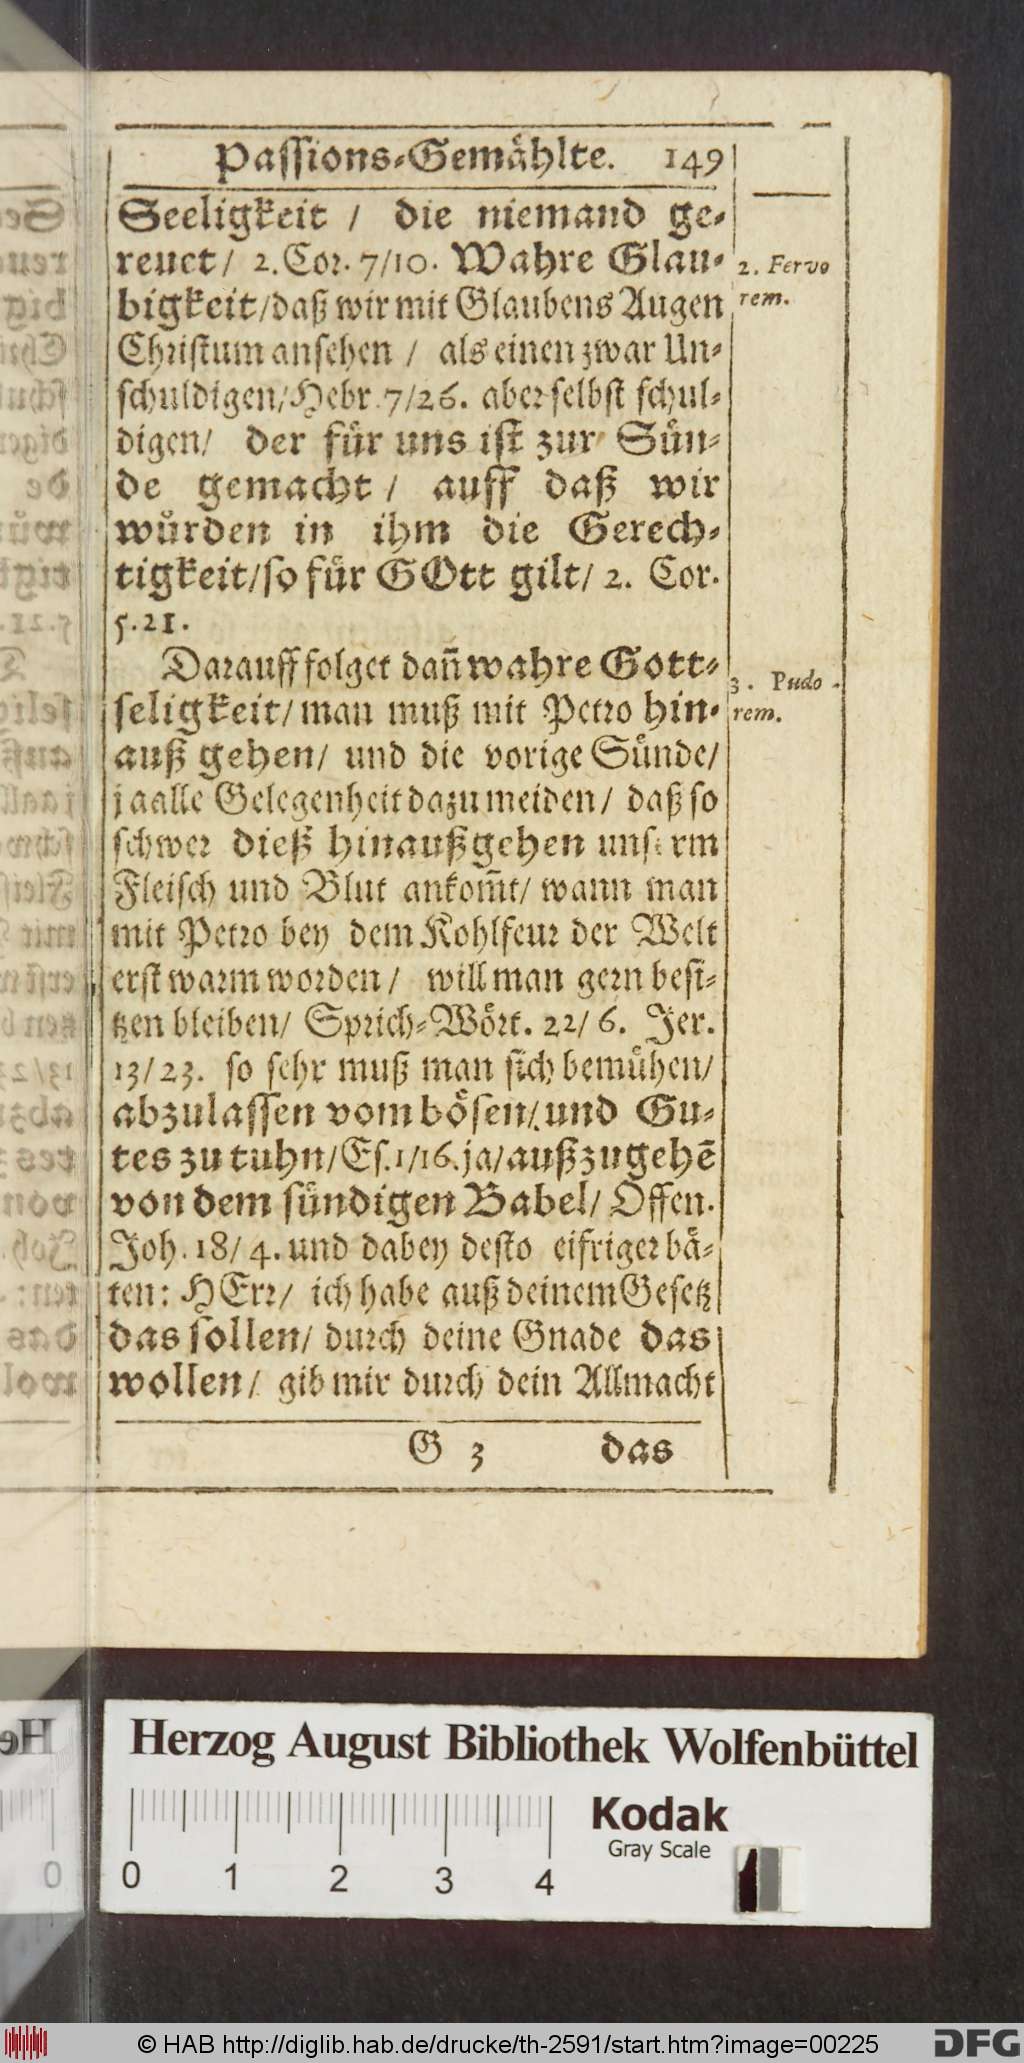 Passions-Gemåhlte. 149
Seeligkeit / die niemand ge-
reuet / 2. Cor. 7/10. Wahre Glau-
bigkeit/daß wir mit Glaubens Augen
Christum ansehen / als einen zwar Un-
schuldigen/Hebr. 7/26. aber selbst schul-
digen/ der fůr uns ist zur Sůn-
de gemacht / auff daß wir
wůrden in ihm die Gerech-
tigkeit/so fůr GOtt gilt/ 2. Cor.
5.21.
Darauff folget dañ wahre Gott-
seligkeit/ man muß mit Petro hin-
auß gehen/ und die vorige Sůnde/
ja alle Gelegenheit dazu meiden/ daß so
schwer dieß hinaußgehen unserm
Fleisch und Blut ankom̃t/ wann man
mit Petro bey dem Kohlfeur der Welt
erst warm worden / will man gern besi-
tzen bleiben/ Sprich-Wört. 22/6. Jer.
13/23. so sehr muß man sich bemůhen/
abzulassen vom bösen/ und Gu-
tes zu tuhn/Es.1/16. ja/außzugehẽ
von dem sůndigen Babel/ Offen.
Joh. 18/4. und dabey desto eifriger bå-
ten: HErr/ ich habe auß deinem Gesetz
das sollen/ durch deine Gnade das
wollen/ gib mir durch dein Allmacht
G 3 das
2. Fervo
rem.
3. Pudo-
rem.
Herzog August Bibliothek Wolfenbüttel
Kodak
Gray Scale
0 1 2 3 4
© HAB http://diglib.hab.de/drucke/th-2591/start.htm?image=00225
DFG